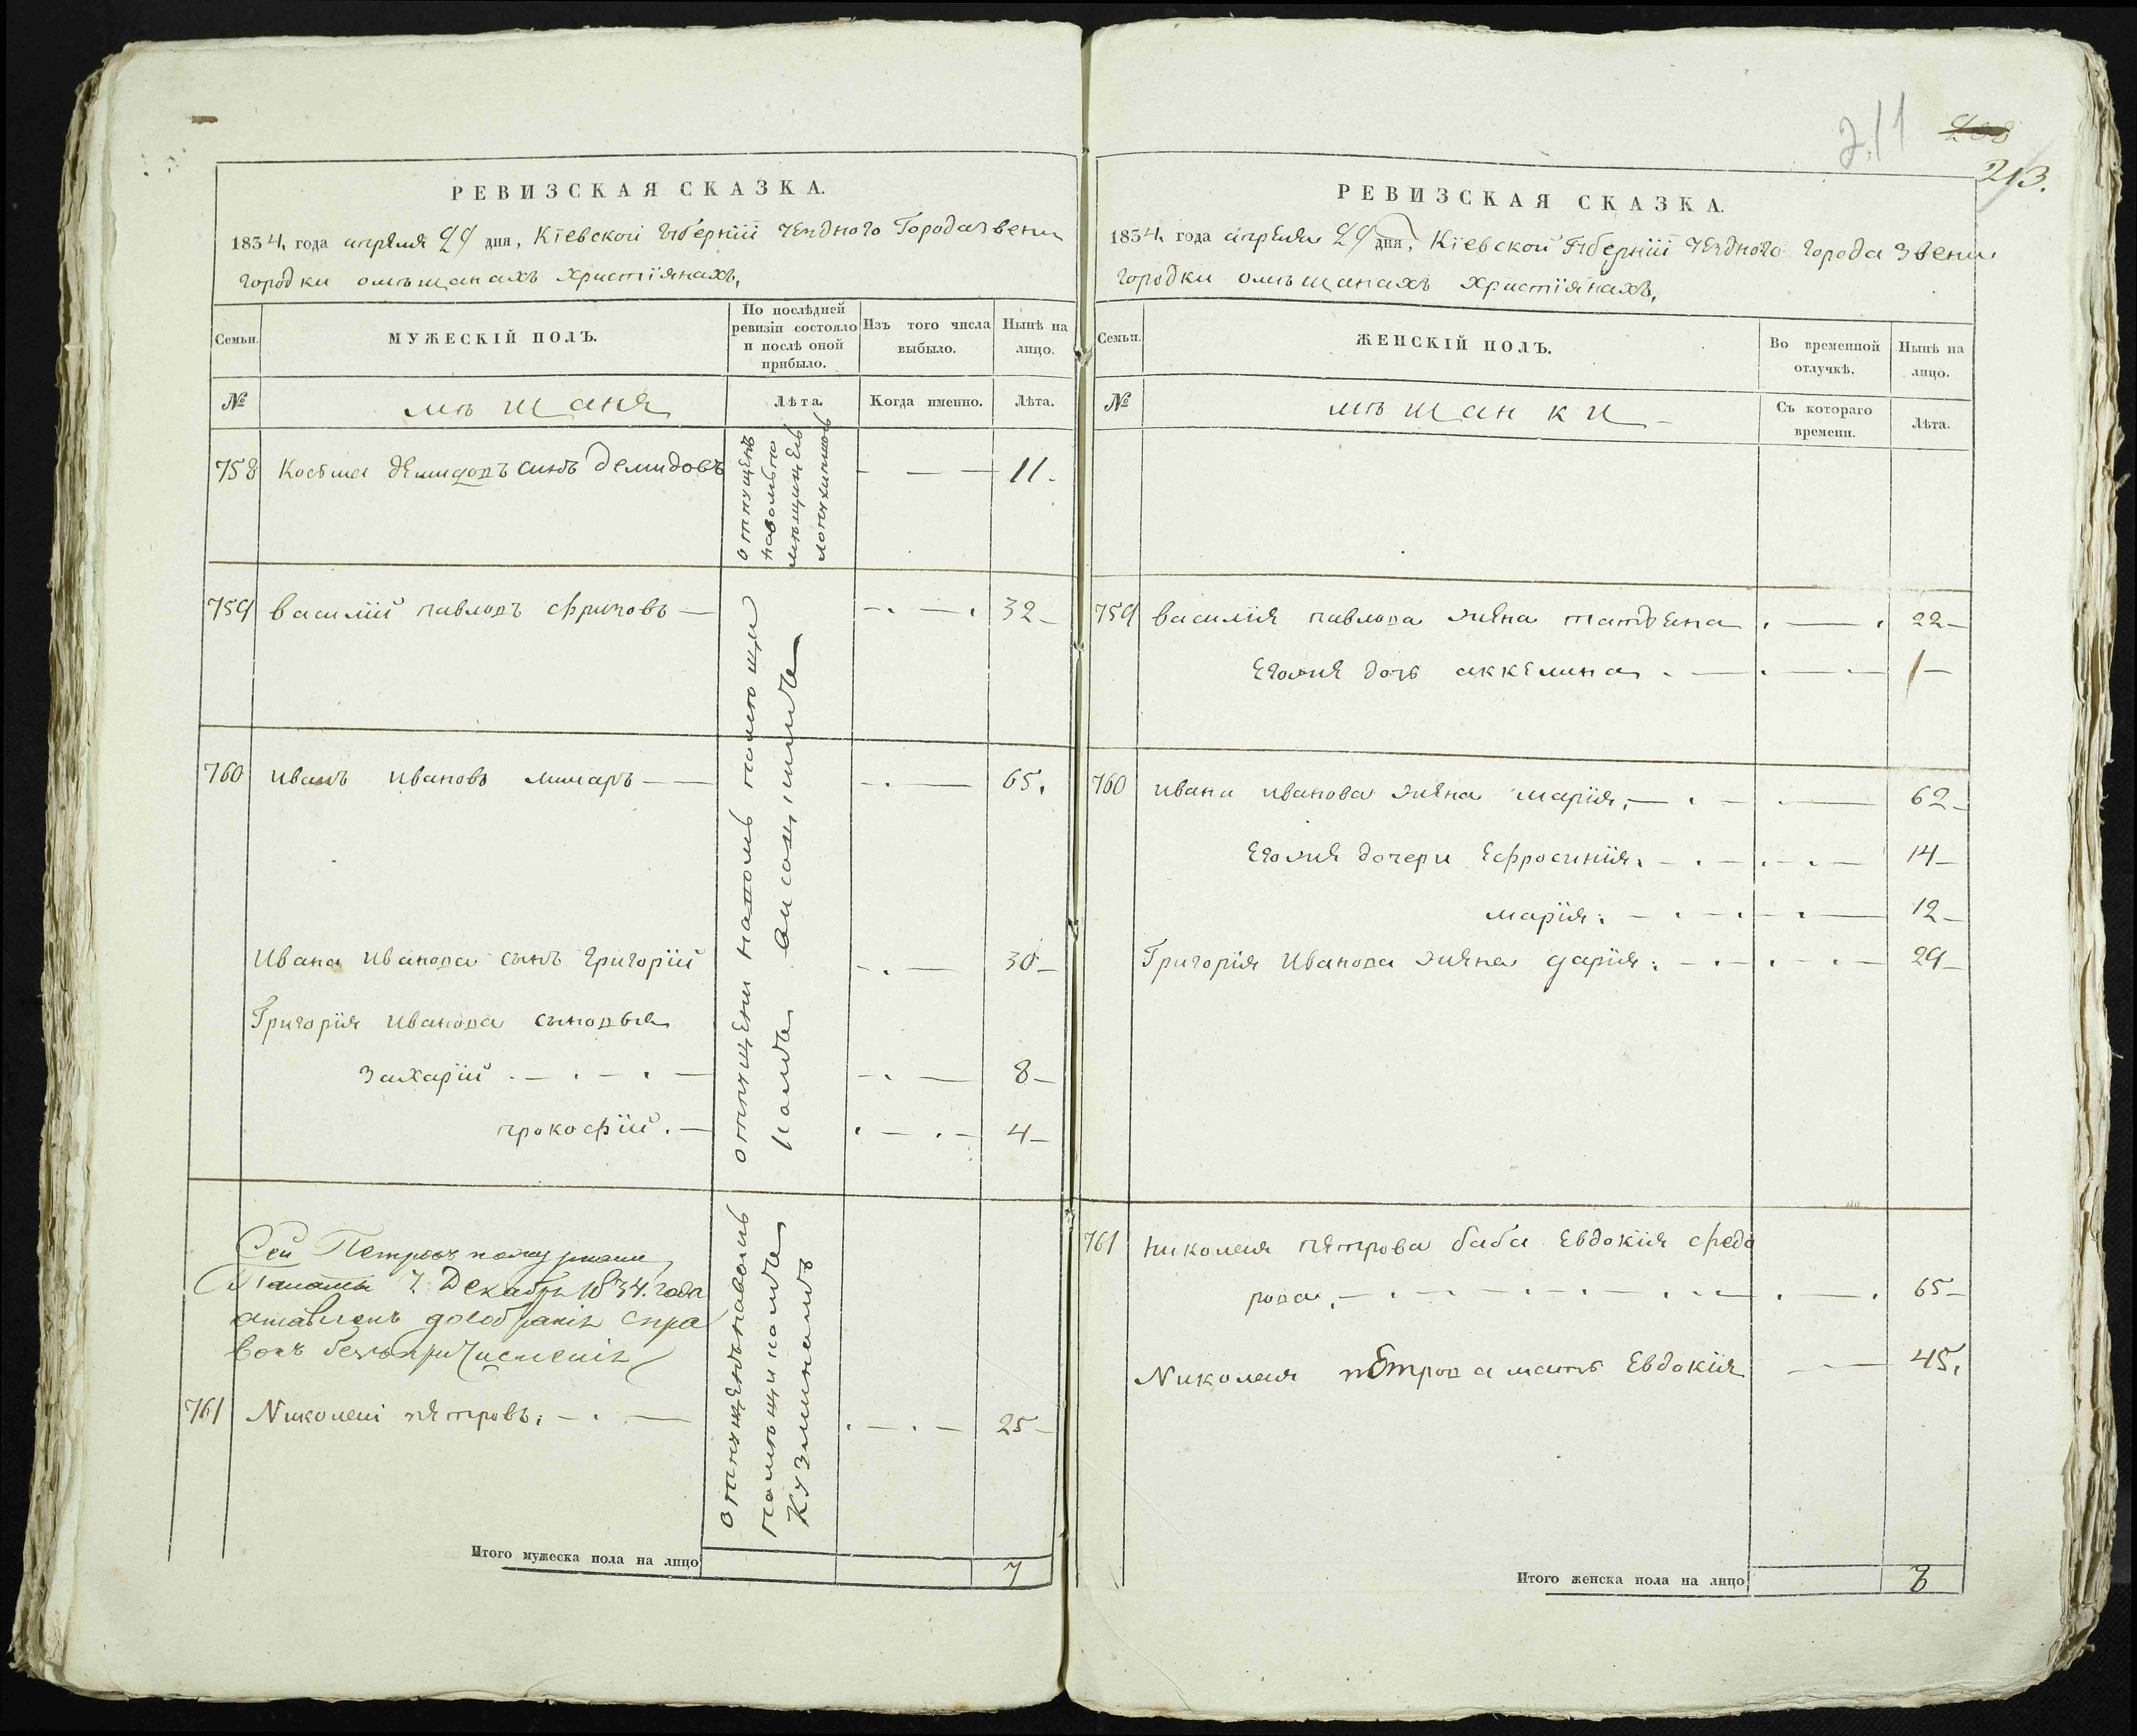 РЕВИЗСКАЯ СКАЗКА.
1834, года апреля 29 дня, Кіевской губерніи уезднаго Города звени
городки о мѣщанахъ христіянахъ,
Семьи.
МУЖЕСКІЙ ПОЛЪ.
По послѣдней
ревизіи состояло
и послѣ оной
прибыло.
Изъ того числа
выбыло.
Нынѣ на
лицо.
№
мѣщаня
Лѣта.
Когда именно.
Лѣта.
758 Косма демидовъ синъ демидовъ 11.
отпущенъ
наволю
759 василій павловъ 32
760 иванъ ивановъ лимаръ 65.
Ивана иванова сынъ григорій 30
Григорія иванова сыновья
Захарій 8
прокофій. 4
отпущени
Сей Петровъ по
Палаты 7. Декабря 1834. года
оставленъ до собранія спра
вокъ безъ причисленія
761 Николай петровъ. 25
Итого мужеска пола на лицо
7
211
213.
РЕВИЗСКАЯ СКАЗКА.
1834, года апреля 29 дня, Кіевской Губерніи уезднаго города звени
городки о мѣщанахъ христіянахъ,
Семьи.
ЖЕНСКІЙ ПОЛЪ.
Во временной
отлучкѣ.
Нынѣ на
лицо.
№
мѣщанки
Съ котораго
времени.
Лѣта.
759 василія павлова жена татьяна 22
егоже дочь аккелина 1
760 ивана иванова жена марія, 62
егоже дочери Ефросинія. 14
марія. 12
Григорія иванова жена дарія. 29
761 николая петрова баба Евдокія федо
рова, 65
Николая петрова мать Евдокія 45.
Итого женска пола на лицо
8